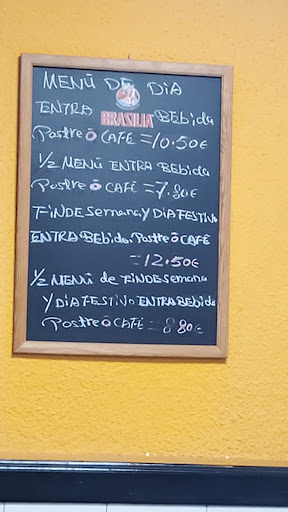 MENÚ DE DIA
ENTRA BRASILIA BEbida
Postre ó CAFÉ = 10.50€
1/2 MENÚ ENTRA BEbida
Postre ó CAFÉ = 7.80€
FINDE semana Y DIA FESTIVO
ENTRA BEbida. Postre ó CAFÉ
= 12.50€
1/2 MENÚ de FINDE semana
Y DIA FESTIVO ENTRA BEbida
Postre ó CAFÉ = 8.80€